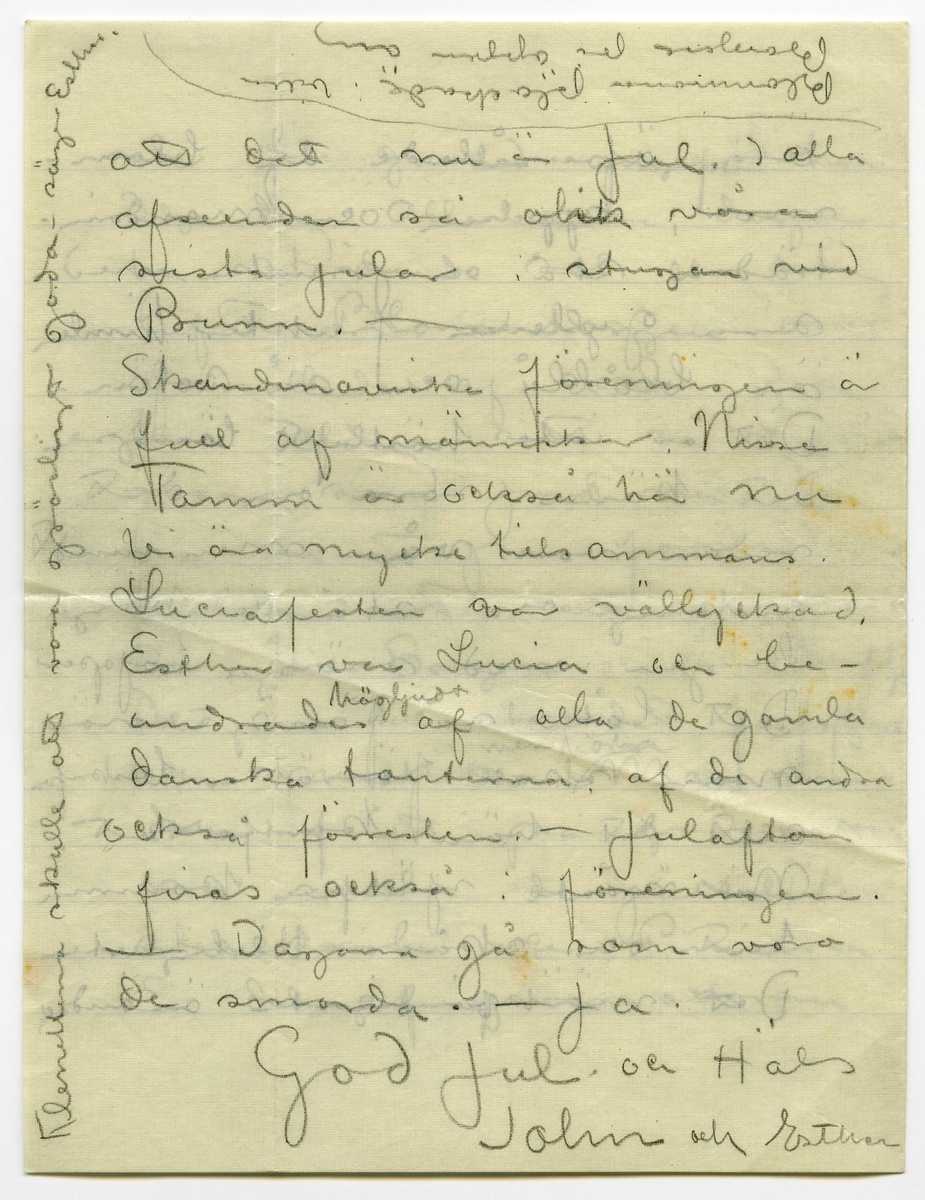 att det nu är Jul. I alla
afseenden så olik våra
sista jular i stugan vid
Bunn. —
Skandinaviska föreningen är
full af människor. Nisse
Tamm är också här nu
Vi äro mycke tillsammans.
Luciafesten var vällyckad.
Esther var Lucia och be-
undrades högljudt af alla de gamla
danska tanterna, af de andra
också förresten. — Julafton
firas också i föreningen.
— Dagarna gå som voro
de smorda. — Ja.
God Jul och Häls
John och Esther
Klenätterna skulle att vara görlingt goda – säger Esther.
Blommorna